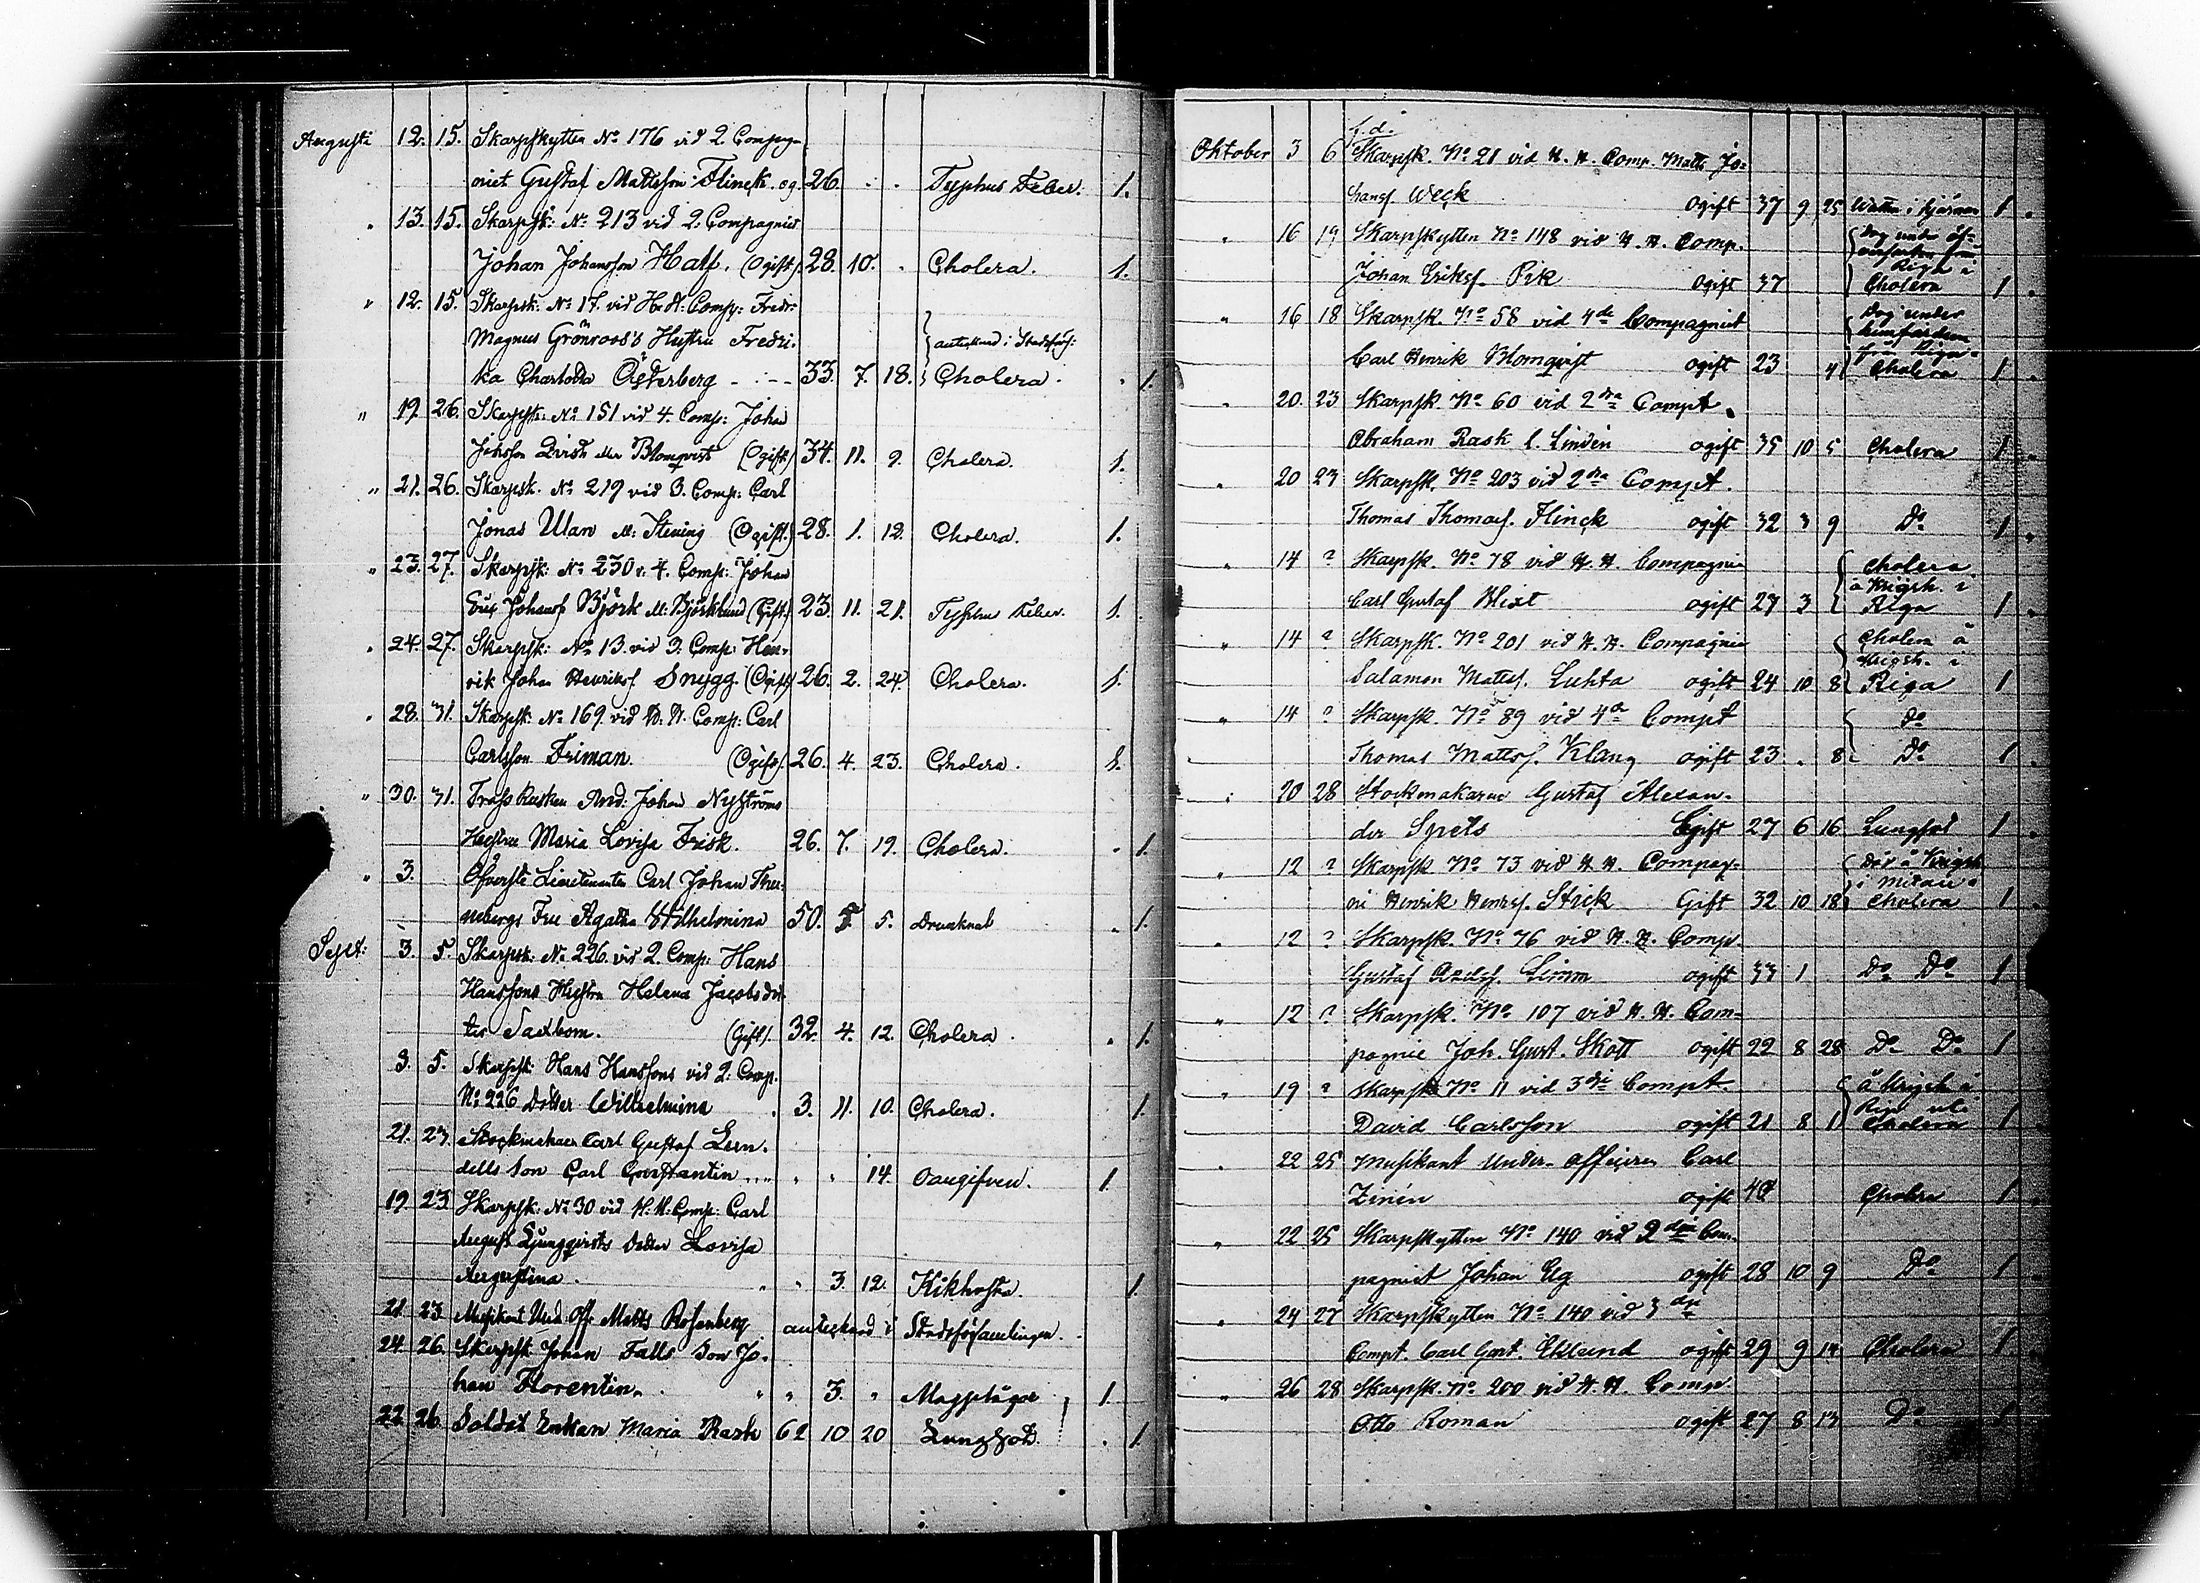 Augusti 12. 15. Skarpskytten No 176 vid 2. Compag-
niet Gustaf Mattsson Flinck. og. 26. . . Typhus Feber. 1.
" 13. 15. Skarpsk: No 213 vid 2. Compagniet
Johan Johansson Half. (Ogift) 28. 10. . Cholera. 1.
" 12. 15. Skarpsk: No 17. vid H. K. Comp: Fredr.
Magnus Grönroos's Hustru Fredri- antecknad i Stadsförs:
ka Charlotta Österberg - - - 33. 7. 18. Cholera. . 1.
" 19. 26. Skarpsk: No 151 vid 4. Comp: Johan
Qvist Blomqvist (Ogift) 34. 11. 9. Cholera. 1.
" 21. 26. Skarpsk. No 219 vid 3. Comp: Carl
Jonas Ulan (Ogift.) 28. 1. 12. Cholera. 1.
" 23. 27. Skarpsk: No 230 v. 4. Comp: Johan
Johansf Björk Björklund (Gift.) 23. 11. 21. Typhus Feber. 1.
" 24. 27. Skarpsk: No 13. vid 3. Comp: Hen-
rik Johan Henriksf Snygg. (Ogift) 26. 2. 24. Cholera. 1.
" 28. 31. Skarpsk: No 169. vid H. K. Comp: Carl
Carlsson Friman. (Ogift). 26. 4. 23. Cholera. 1.
" 30. 31. Trosskusken And: Johan Nyströms
Hustru Maria Lovisa Frisk. 26. 7. 19. Cholera. . 1.
" 3. Öfverste Lieutenanten Carl Johan Ther-
Fru Agatha Wilhelmina 50. 5. Drunknat . 1.
Sept: 3. 5. Skarpsk: No 226. vid 2. Comp: Hans
Hanssons Hustru Helena Jacobsdot-
ter Saxbom. (Gift). 32. 4. 12. Cholera. . 1.
3. 5. Skarpsk: Hans Hanssons vid 2. Comp.
No 226 Dotter Wilhelmina . 3. 11. 10. Cholera. 1.
21. 23. Stockmakaren Carl Gustaf Lin-
dells Son Carl Constantin " " 14. Oangifven. 1.
19. 23. Skarpsk: No 30 vid H. K. Comp: Carl
August Ljungqvists Dotter Lovisa
Augustina. " " 3. 12. Kikhosta. 1.
21. 23. Musikant Und. Off. Matts Rosenberg antecknad i Stadsförsamlingen.
24. 26. Skarpsk Johan Falls Son Jo-
han Florentin. " " 3. " Magplågor 1.
22. 26. Soldat Enkan Maria Rask 62 10 20 Lungsot. . 1.
f.d.
Oktober 3 6 Skarpsk. No 21 vid K. K. Comp. Matts Jo-
hansf Weck ogift 37 9 25 Watten i hjärnan 1
" 16 19 Skarpskytten No 148 vid K. K. Comp. Dog under öf-
Johan Eriksf. Pik ogift 37 Riga i Cholera 1
" 16 18 Skarpsk. No 58 vid 4de Compagniet Dog under hemfärden
Carl Henrik Blomqvist ogift 23 4 från Riga Cholera 1
" 20 23 Skarpsk. No 60 vid 2dra Compt.
Abraham Rask l. Lindén ogift 35 10 5 Cholera 1
" 20 23 Skarpsk. No 203 vid 2dra Compt.
Thomas Thomasf. Flinck ogift 32 3 9 Do 1
" 14 ? Skarpsk. No 78 vid K. K. Compagnie Cholera
Carl Gustaf Blixt ogift 27 3 å Krigsh. i Riga 1
" 14 ? Skarpsk. No 201 vid K. K. Compagnie Cholera å Krigsh. i
Salamon Mattsf. Luhta ogift 24 10 8 Riga 1
" 14 ? Skarpsk. No 89 vid 4de Compt Do
Thomas Mattsf. Klang ogift 23 . 8 Do 1
" 20 28 Stockmakaren Gustaf Alexan-
der Spets Ogift 27 6 16 Lungsot 1
" 12 ? Skarpsk No 73 vid K. K. Compag- Död å Krigsh
ni Henrik Henrsf. Stick Gift 32 10 18 i Mitau i Cholera 1
" 12 ? Skarpsk. No 76 vid K. K. Comp.
Gustaf Limm ogift 33 1 Do Do 1
" 12 ? Skarpsk. No 107 vid K. K. Com-
pagnie Joh. Gust. Skott ogift 22 8 28 Do Do 1
" 19 ? Skarpsk No 11 vid 3dje Compt. å Krigsh i
David Carlsson ogift 21 8 1 Riga Cholera 1
" 22 25 Musikant Under-Officeren Carl
Zinén ogift Cholera 1
" 22 25 Skarpskytten No 140 vid 2dra Com-
pagniet Johan Eg ogift 28 10 9 Do 1
" 24 27 Skarpskytten No 140 vid 3dje
Compt. Carl Gust. Eklund ogift 29 9 14 Cholera 1
" 26 28 Skarpsk. No 200 vid K. K. Comp
Otto Roman ogift 27 8 13 Do 1